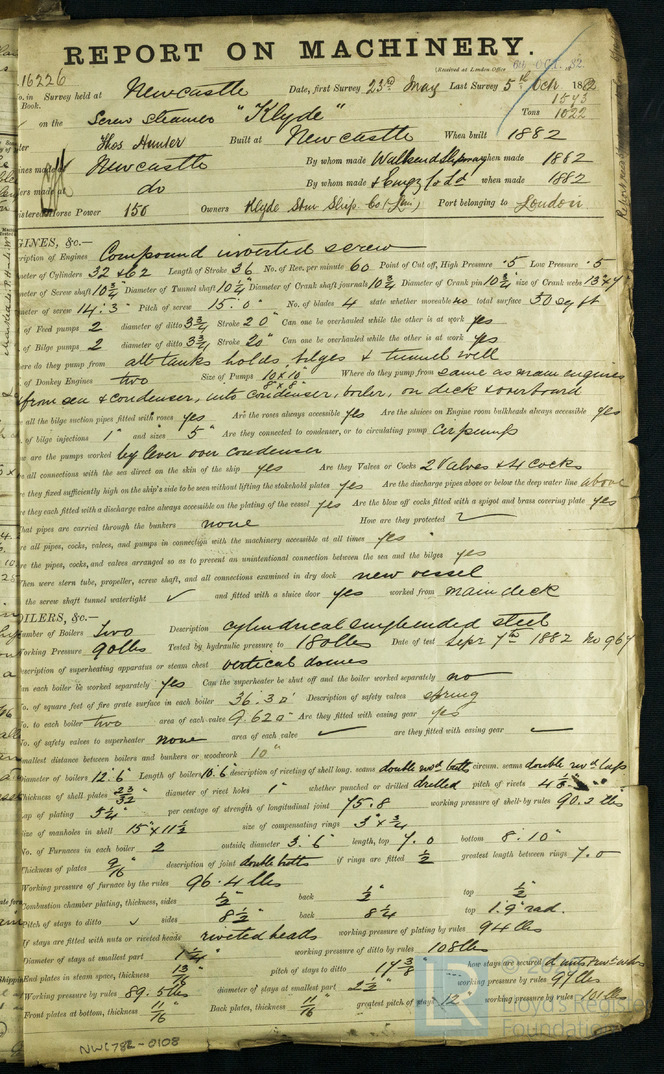 REPORT ON MACHINERY.
16226
(Received at London Office
No. in Survey held at Newcastle Date, first Survey 23rd May Last Survey 5th Octr 1882
Book.
1543
on the Screw steamer "Klyde" Tons 1022
Thos Hunter Built at Newcastle When built 1882
Engines made at Newcastle By whom made Wallsend Slipway when made 1882
Boilers made at do By whom made & Engg Co Ld when made 1882
Registered Horse Power 150 Owners Klyde Stm Ship Co (Lim) Port belonging to London
ENGINES, &c.—
Description of Engines Compound inverted screw
Diameter of Cylinders 32 & 62 Length of Stroke 36 No. of Rev. per minute 60 Point of Cut off, High Pressure .5 Low Pressure .5
Diameter of Screw shaft 10 3/4 Diameter of Tunnel shaft 10 1/4 Diameter of Crank shaft journals 10 3/4 Diameter of Crank pin 10 3/4 size of Crank webs
Diameter of screw 14.3" Pitch of screw 15.0" No. of blades 4 state whether moveable no total surface 50 sq ft
No. of Feed pumps 2 diameter of ditto 3 3/4 Stroke 20" Can one be overhauled while the other is at work yes
No. of Bilge pumps 2 diameter of ditto 3 3/4 Stroke 20" Can one be overhauled while the other is at work yes
Where do they pump from all tanks holds bilges & tunnel well
No. of Donkey Engines two Size of Pumps 10" x 10" 8" x 8" Where do they pump from same as main engines
from sea & condenser, into condenser, boiler, on deck & overboard
Are all the bilge suction pipes fitted with roses yes Are the roses always accessible yes Are the sluices on Engine room bulkheads always accessible yes
No. of bilge injections 1 and sizes 5" Are they connected to condenser, or to circulating pump Cir pump
How are the pumps worked by lever over condenser
Are all connections with the sea direct on the skin of the ship yes Are they Valves or Cocks 2 Valves & 4 cocks
Are they fixed sufficiently high on the ship's side to be seen without lifting the stokehold plates yes Are the discharge pipes above or below the deep water line above
Are they each fitted with a discharge valve always accessible on the plating of the vessel yes Are the blow off cocks fitted with a spigot and brass covering plate yes
What pipes are carried through the bunkers none How are they protected
Are all pipes, cocks, valves, and pumps in connection with the machinery accessible at all times yes
Are the pipes, cocks, and valves arranged so as to prevent an unintentional connection between the sea and the bilges yes
When were stern tube, propeller, screw shaft, and all connections examined in dry dock new vessel
Is the screw shaft tunnel watertight ✓ and fitted with a sluice door yes worked from main deck
BOILERS, &c.—
Number of Boilers Two Description cylindrical single ended steel
Working Pressure 90 lbs Tested by hydraulic pressure to 180 lbs Date of test Sepr 7th 1882 No 967
Description of superheating apparatus or steam chest vertical domes
Can each boiler be worked separately yes Can the superheater be shut off and the boiler worked separately no
No. of square feet of fire grate surface in each boiler 36.3 Description of safety valves spring
No. to each boiler two area of each valve 9.62 Are they fitted with easing gear yes
No. of safety valves to superheater none area of each valve are they fitted with easing gear
Smallest distance between boilers and bunkers or woodwork 10"
Diameter of boilers 12.6" Length of boilers 10.6" description of riveting of shell long. seams double rivd butts circum. seams double rivd laps
Thickness of shell plates 23/32 diameter of rivet holes 1" whether punched or drilled drilled pitch of rivets
Lap of plating 5 1/4" per centage of strength of longitudinal joint 75.8 working pressure of shell by rules 90.2 lbs
Size of manholes in shell 15" x 11 1/2 size of compensating rings 3" x 3/4
No. of Furnaces in each boiler 2 outside diameter 3.6 length, top 7.0 bottom 8.10"
Thickness of plates 9/16 description of joint double butts if rings are fitted 1/2 greatest length between rings 7.0
Working pressure of furnace by the rules 96.4 lbs
Combustion chamber plating, thickness, sides 1/2" back 1/2" top 1/2"
Pitch of stays to ditto ✓ sides 8 1/2" back 8 1/4 top 1.9" rad.
If stays are fitted with nuts or riveted heads riveted heads working pressure of plating by rules 94 lbs
Diameter of stays at smallest part 1 1/4" working pressure of ditto by rules 108 lbs
End plates in steam space, thickness 13/16 pitch of stays to ditto 17 3/8 how stays are secured
Working pressure by rules 89.5 lbs diameter of stays at smallest part 2 1/2" working pressure by rules 97 lbs
Front plates at bottom, thickness 11/16 Back plates, thickness 11/16 greatest pitch of stays 12 working pressure by rules 101 lbs
NWC782-0108
Lloyd's Register
Foundation